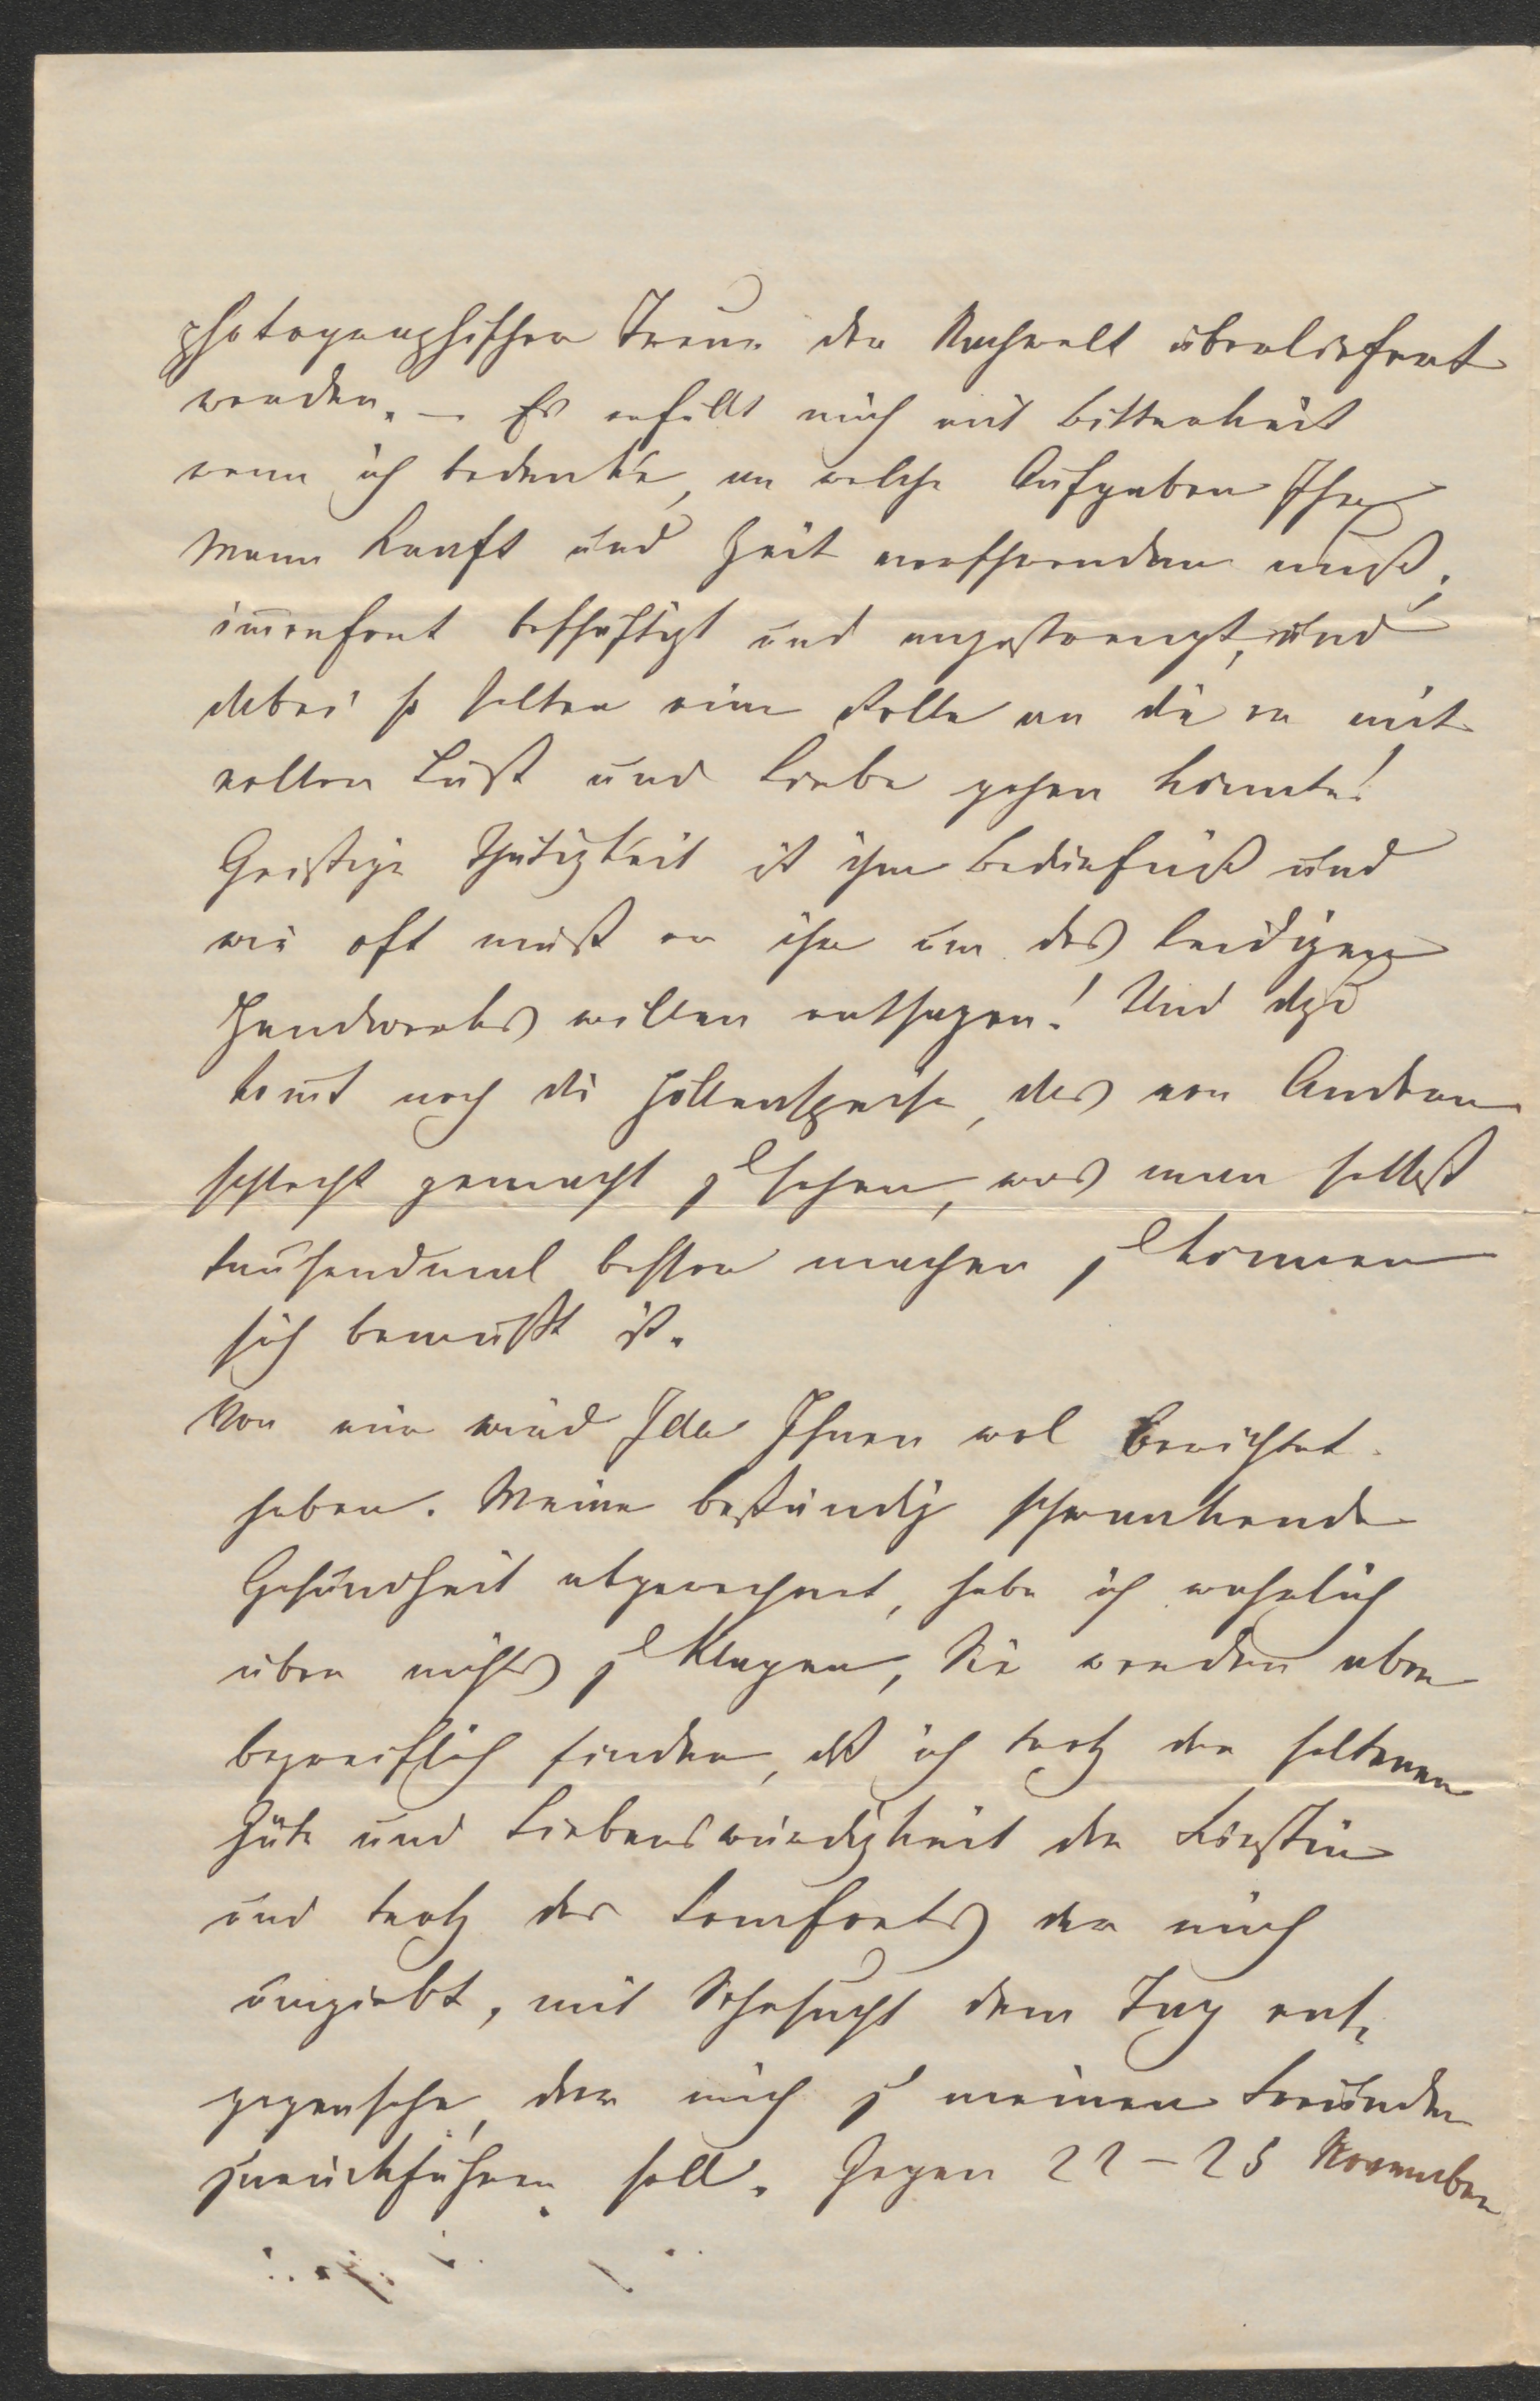 photographischer Treue der Nachwelt überliefert
werden. – Es erfüllt mich mit Bitterkeit
wenn ich bedenke, an welche Aufgaben Ihr
Mann Kraft und Zeit verschwenden muß,
immerfort beschäftigt und angestrengt, und
dabei so selten eine Rolle an die er mit
voller Lust und Liebe gehen könnte!
Geistige Thätigkeit ist ihm Bedürfniß und
wie oft muß er ihr um des leidigen
Handwerks willen entsagen! Und dazu
kommt noch die Höllenspeise, das von Andern
schlecht gemacht zu sehen, was man selbst
tausendmal besser machen zu können
sich bewußt ist.
Von mir wird Ida Ihnen wol berichtet
haben. Meine beständig schwankende
Gesundheit abgerechnet, habe ich wahrlich
über nichts zu klagen, Sie werden aber
begreiflich finden, daß ich trotz der seltenen
Güte und Liebenswürdigkeit der Fürstin
und trotz des Comforts der mich
umgiebt, mit Sehnsucht dem Tag ent-
gegensehe, der mich zu meinen Freunden
zurückführen soll. Gegen 22–25 November